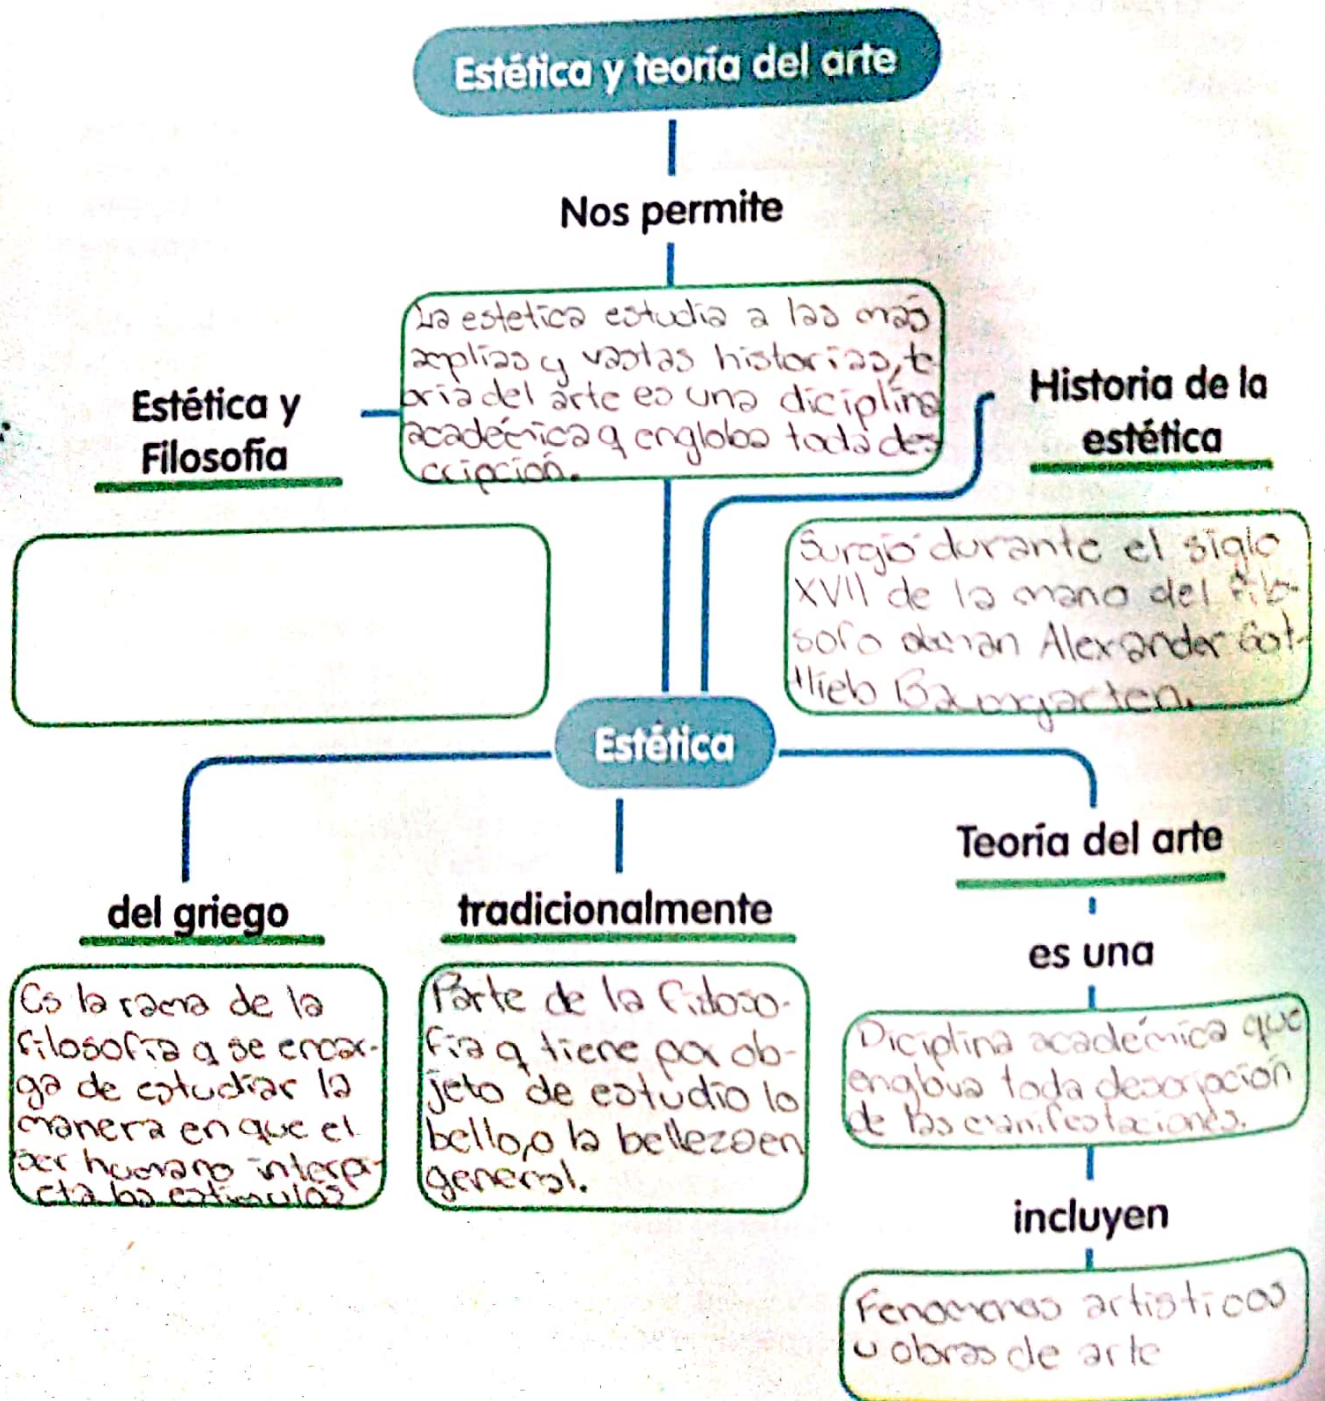 Estética y teoría del arte
Nos permite
La estetica estudia a las más
amplias y vastas historias, te
oria del arte es una diciplina
académica q engloba toda des
cripción.
Estética y
Filosofía
Historia de la
estética
Surgió durante el siglo
XVII de la mano del filo-
sofo aleman Alexander Got-
tlieb Baumgarten.
Estética
del griego
Es la rama de la
filosofia q se encar-
ga de estudiar la
manera en que el
ser humano interpr-
eta los estimulos
tradicionalmente
Parte de la filoso-
fia q tiene por ob-
jeto de estudio lo
bello, o la belleza en
general.
Teoría del arte
es una
Diciplina académica que
englova toda descripcion
de las manifestaciones.
incluyen
Fenomenos artisticos
u obras de arte